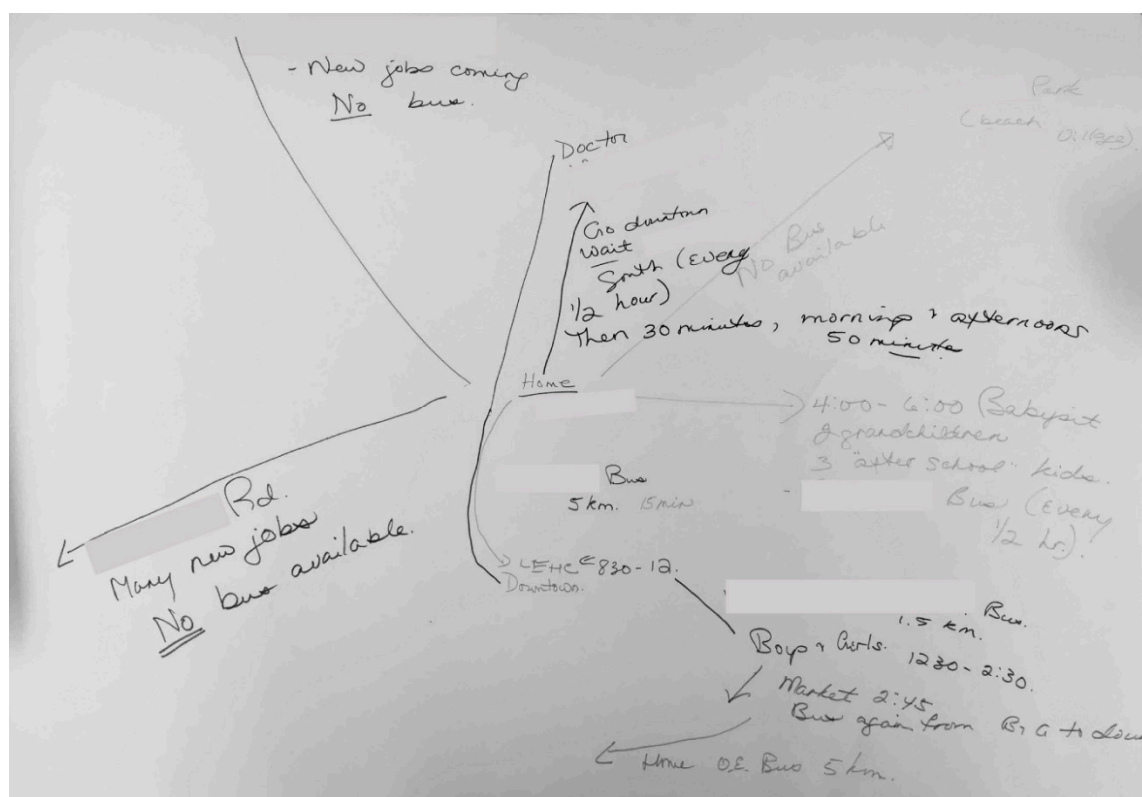 - New jobs coming
No bus.
Park
(beach
Doctor
Go downtown
wait
South (every
1/2 hour)
Then 30 minutes, mornings + afternoons
50 minute
No Bus
available
Home
4:00 - 6:00 (Babysit
2 grandchildren
3 "after school" kids.
- Bus (every
1/2 hr).
Rd.
Many new jobs
No bus available.
Bus
5 km. 15min
LEHC 830-12.
Downtown.
Bus.
1.5 km.
Boys + Girls. 1230 - 2:30.
Market 2:45
Bus again from B+G to dow
Home O.E. Bus 5 km.